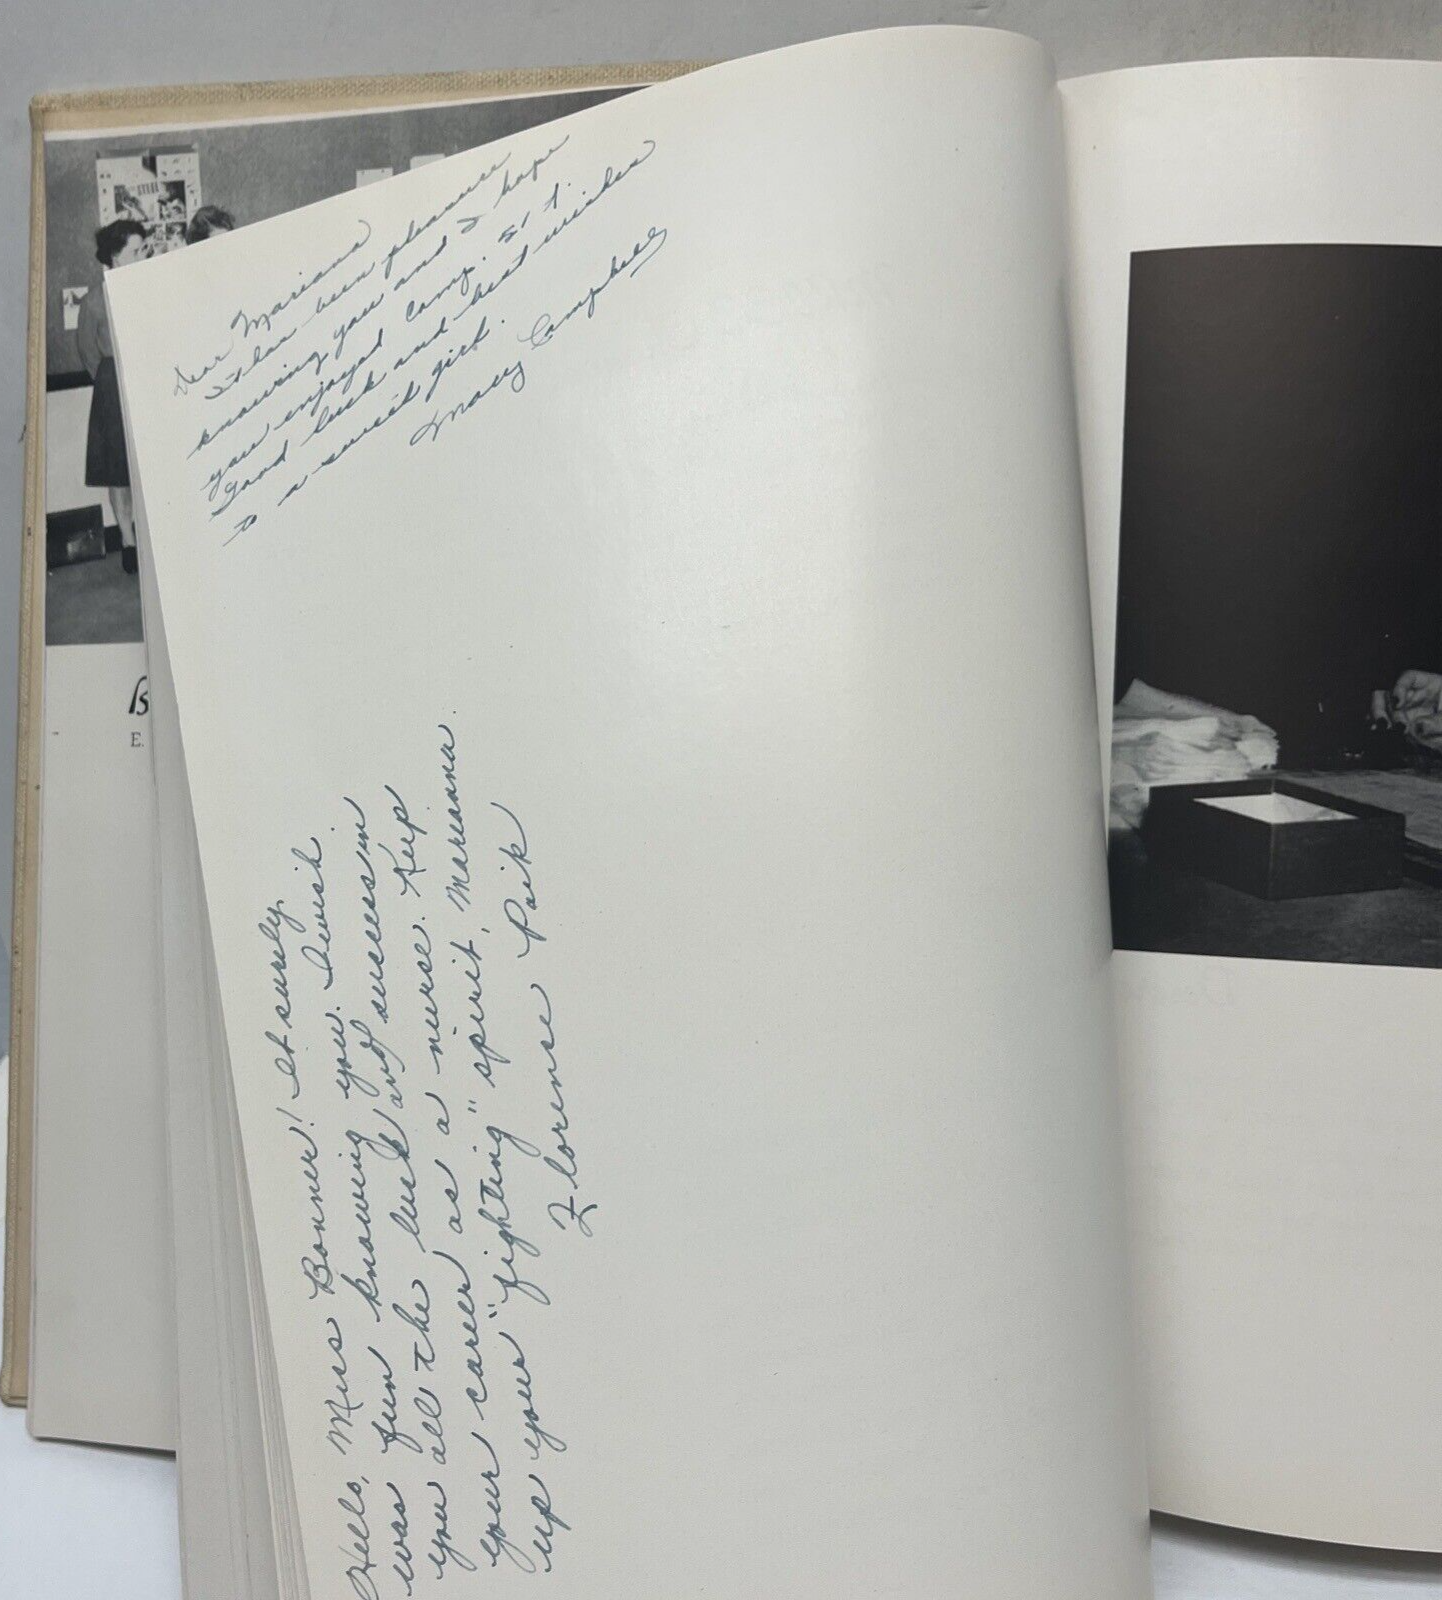 Dear Mariana
It has been pleasure
knowing you and I hope
you enjoyed Camp. 51 +.
Good luck and best wishes
to a sweet girl.
Mary Campbell
Hello, Miss Bonner! It surely
was fun knowing you. I wish
you all the luck and success in
your career as a nurse. Keep
up your "fighting" spirit, Mariana.
Florense Paik
E.